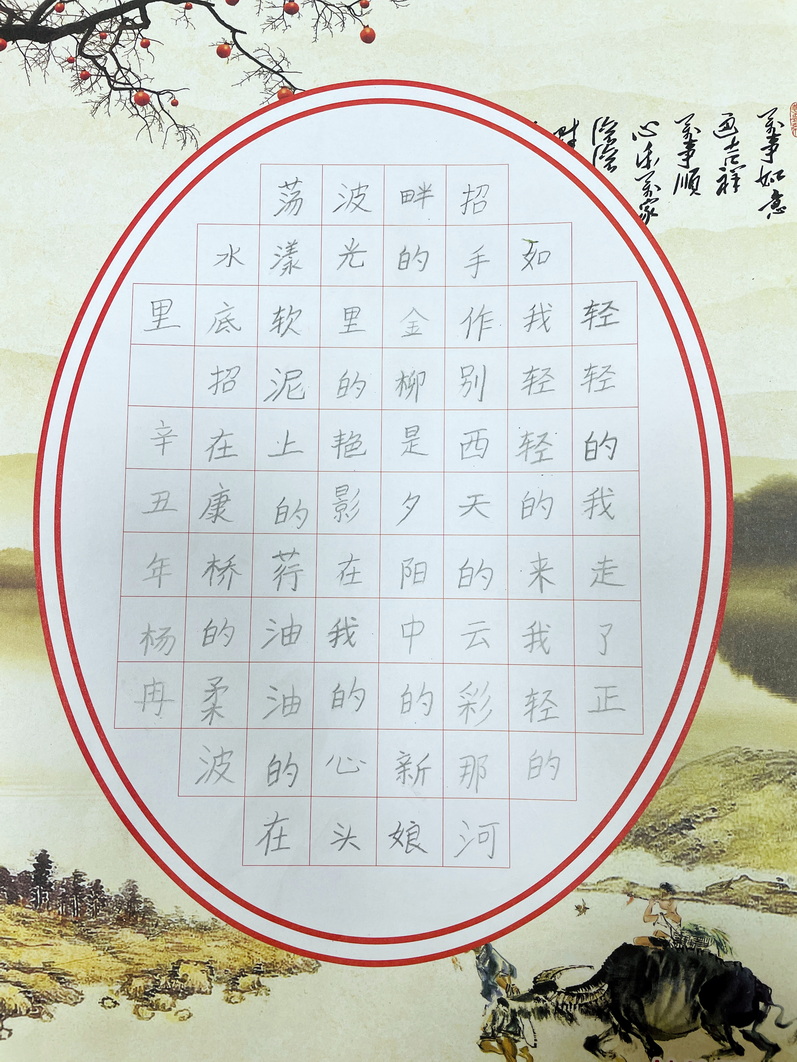 万事如意
吉祥
万事顺
轻轻的我走了正
如我轻轻的来我轻的
招手作别西天的云彩那河
畔的金柳是夕阳中的新娘
波光里的艳影在我的心头
荡漾软泥上的荇油油的在
水底招在康桥的柔波
里 辛丑年杨冉